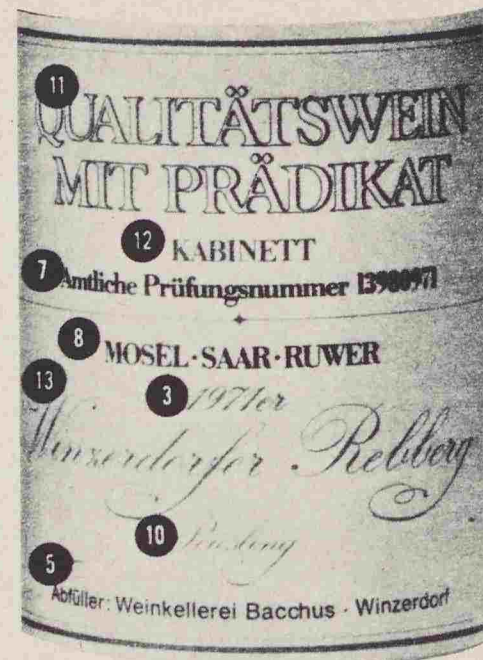 11
QUALITÄTSWEIN
MIT PRÄDIKAT
12 KABINETT
7 Amtliche Prüfungsnummer 13980971
8 MOSEL·SAAR·RUWER
13
3 1971er
Winzerdorfer Rebberg
10 Riesling
5
Abfüller: Weinkellerei Bacchus · Winzerdorf